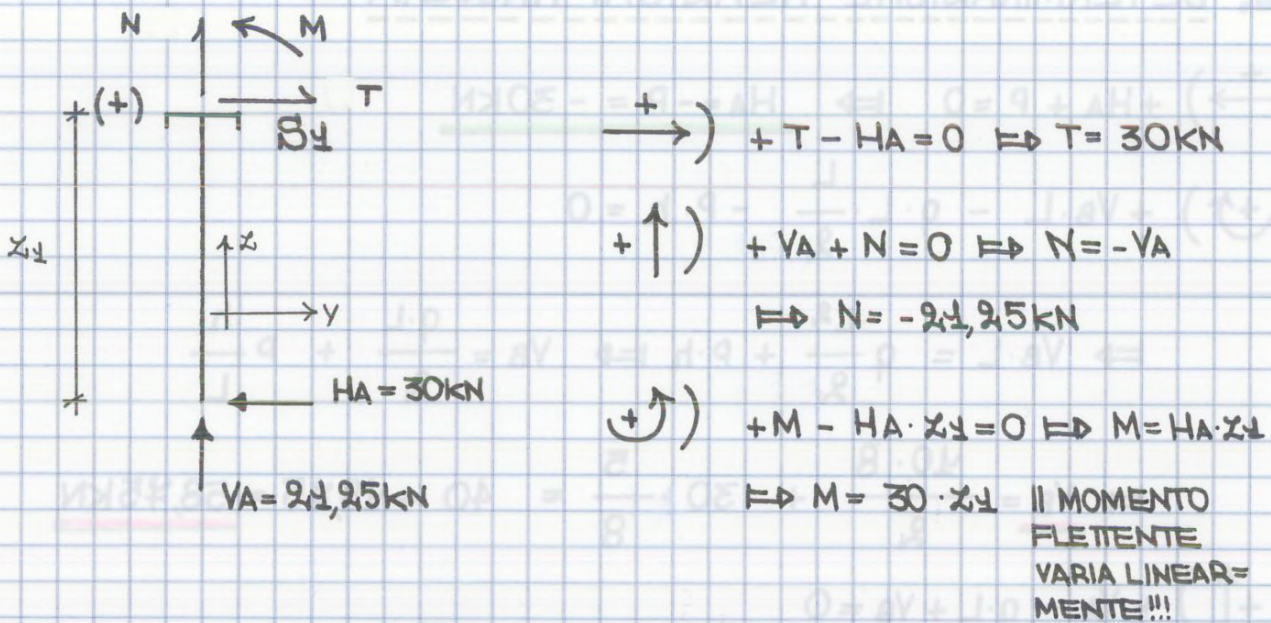 N M
(+) T
S1
z1
z
Y
HA = 30KN
VA = 21,25KN
+ ) + T - HA = 0 ⟹ T = 30KN
+ ) + VA + N = 0 ⟹ N = - VA
⟹ N = - 21,25KN
+ ) + M - HA · z1 = 0 ⟹ M = HA · z1
⟹ M = 30 · z1 Il MOMENTO
FLETTENTE
VARIA LINEAR=
MENTE!!!